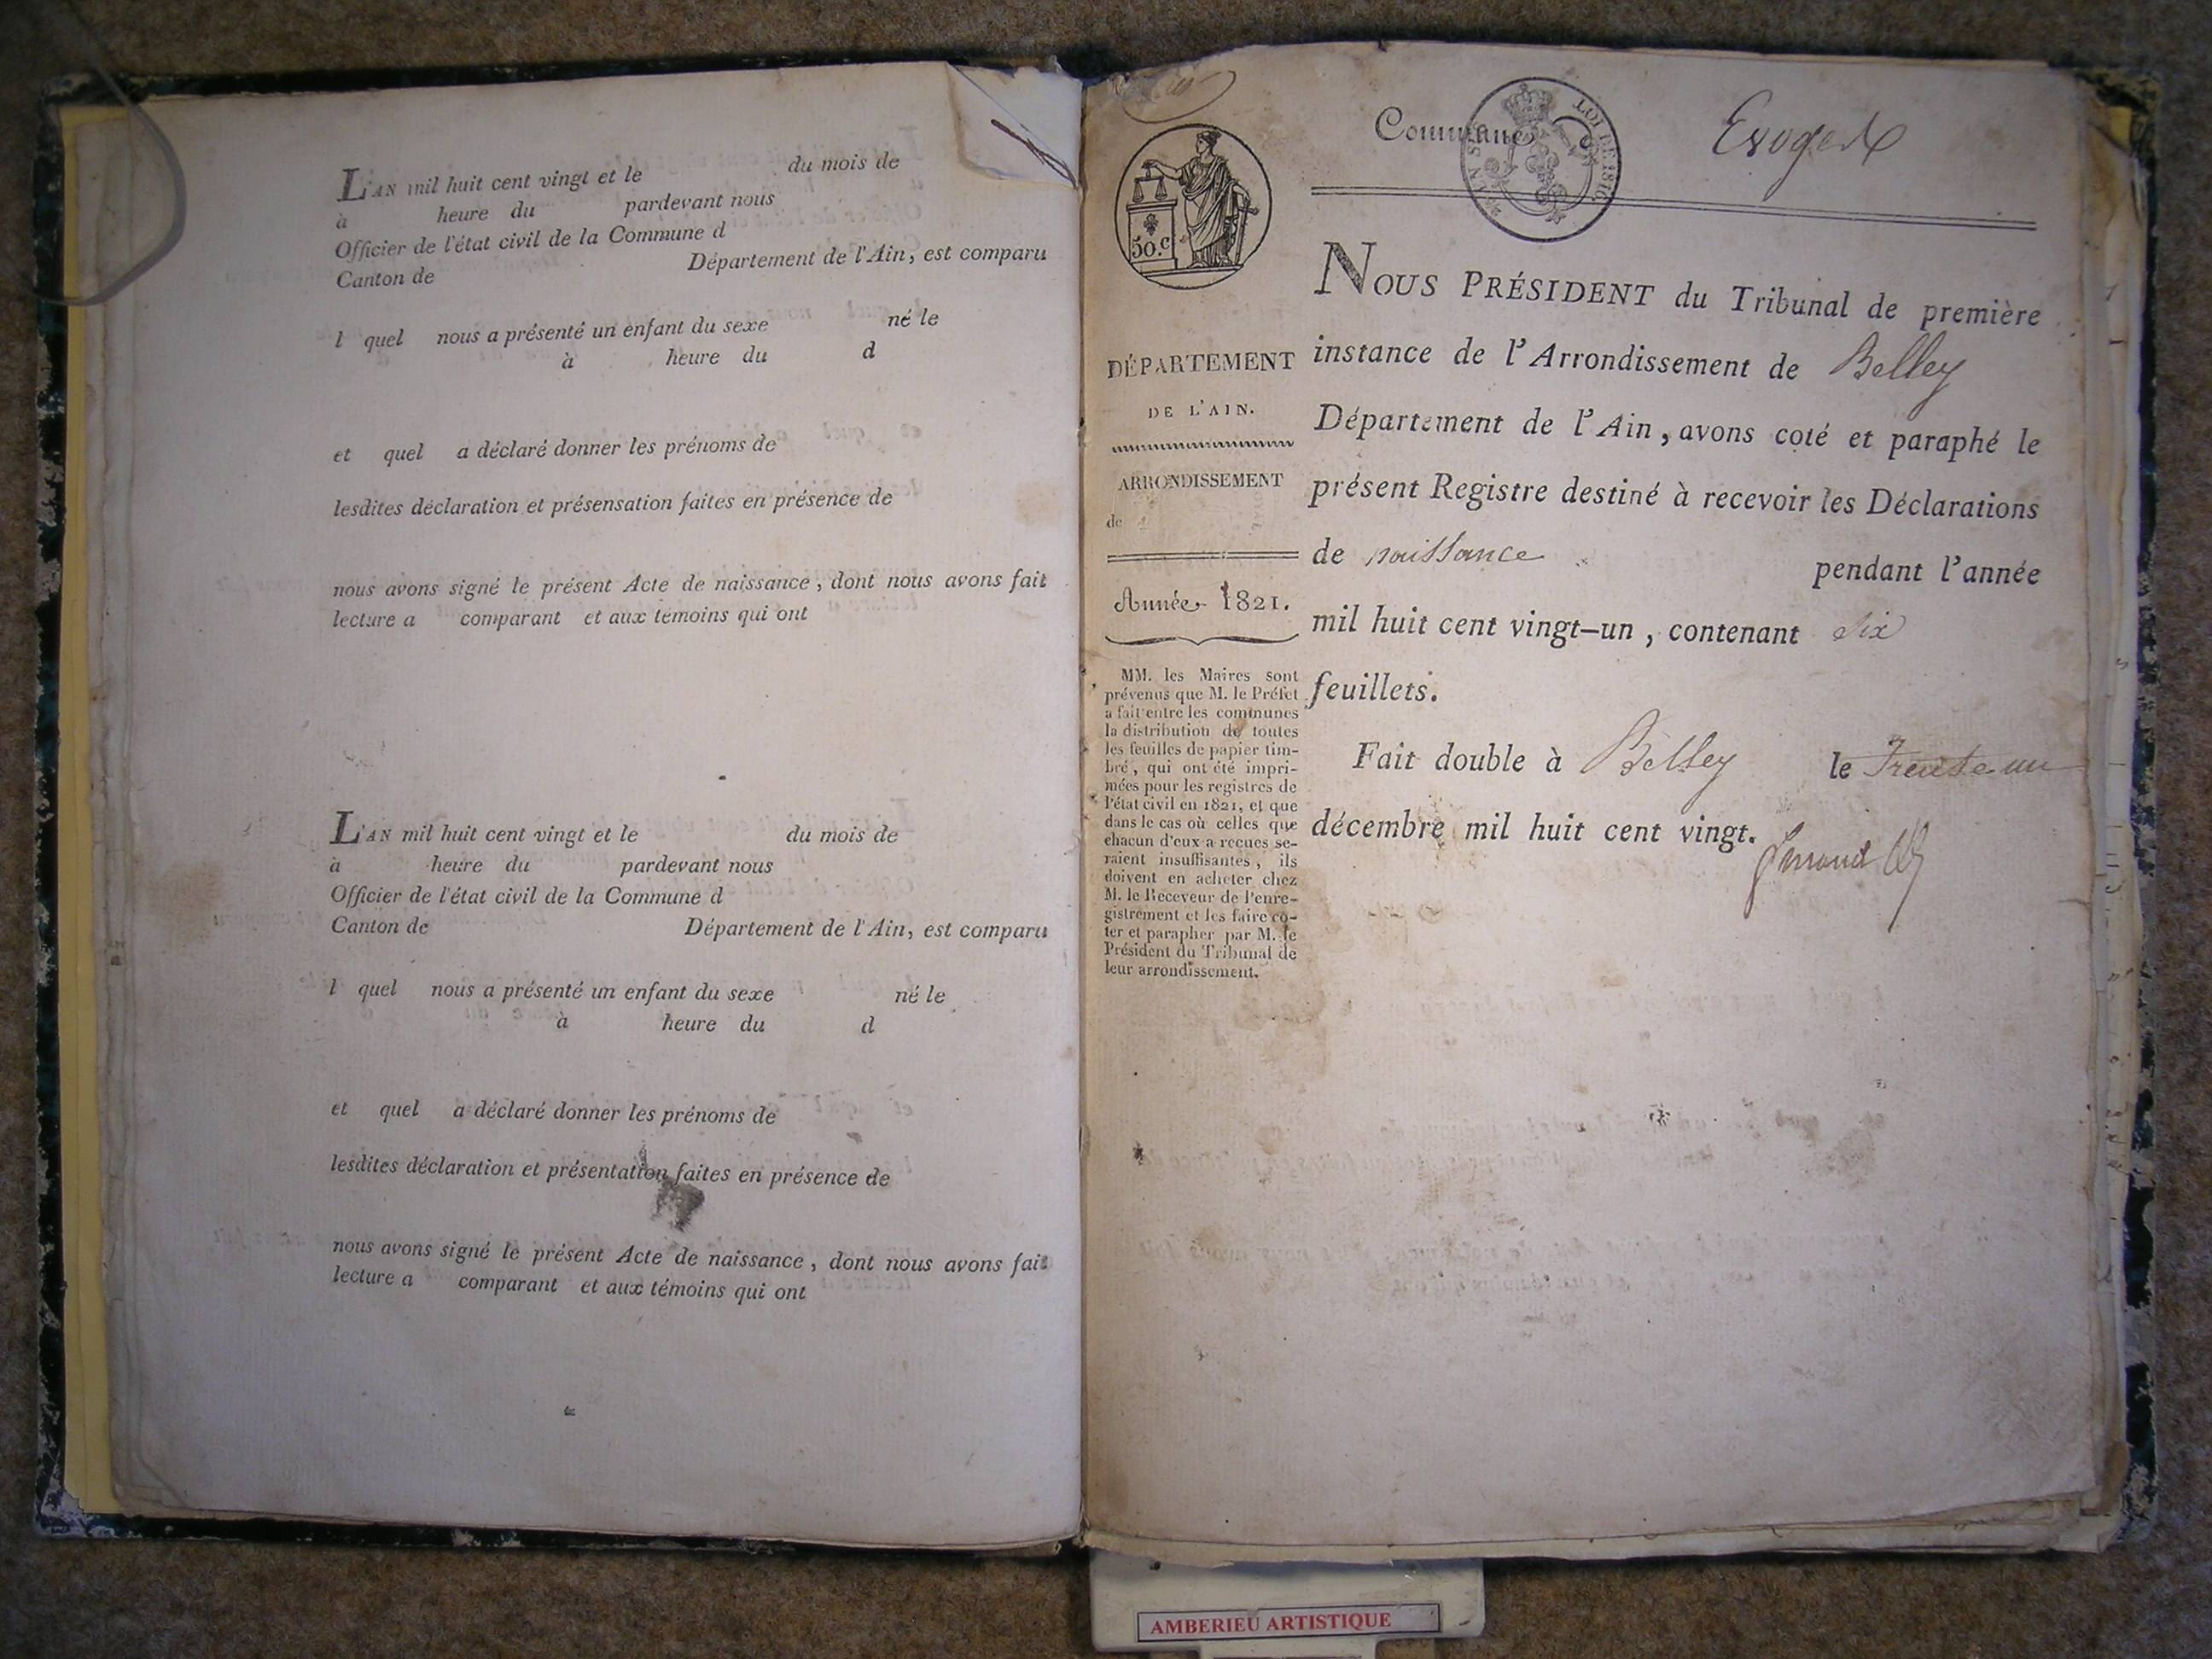 L'AN mil huit cent vingt et le du mois de
à heure du pardevant nous
Officier de l'état civil de la Commune d
Canton de Département de l'Ain, est comparu
l quel nous a présenté un enfant du sexe né le
à heure du d
et quel a déclaré donner les prénoms de
lesdites déclaration et présensation faites en présence de
nous avons signé le présent Acte de naissance, dont nous avons fait
lecture a comparant et aux témoins qui ont
L'AN mil huit cent vingt et le du mois de
à heure du pardevant nous
Officier de l'état civil de la Commune d
Canton de Département de l'Ain, est comparu
l quel nous a présenté un enfant du sexe né le
à heure du d
et quel a déclaré donner les prénoms de
lesdites déclaration et présentation faites en présence de
nous avons signé le présent Acte de naissance, dont nous avons fait
lecture a comparant et aux témoins qui ont
50.c
DÉPARTEMENT
DE L'AIN.
ARRONDISSEMENT
de
Année 1821.
MM. les Maires sont
prévenus que M. le Préfet
a fait entre les communes
la distribution de toutes
les feuilles de papier tim-
bré, qui ont été impri-
mées pour les registres de
l'état civil en 1821, et que
dans le cas où celles que
chacun d'eux a reçues se-
raient insuffisantes, ils
doivent en acheter chez
M. le Receveur de l'enre-
gistrement et les faire co-
ter et parapher par M. le
Président du Tribunal de
leur arrondissement.
Commune
LOI DE 1816
NOUS PRÉSIDENT du Tribunal de première
instance de l'Arrondissement de Belley
Département de l'Ain, avons coté et paraphé le
présent Registre destiné à recevoir les Déclarations
de naissance pendant l'année
mil huit cent vingt-un, contenant six
feuillets.
Fait double à Belley le Trente un
décembre mil huit cent vingt.
AMBERIEU ARTISTIQUE